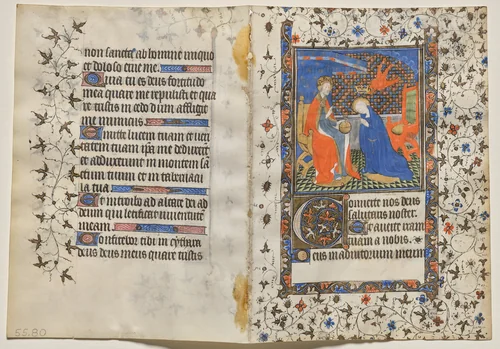 non sancta: ab homine iniquo
et doloso erue me.
Quia tu es deus fortitudo
mea quare me repulisti et qua
re tristis incedo dum affligit
me inimicus.
Emitte lucem tuam et veri
tatem tuam ipsa me deduxerunt
et adduxerunt in montem san
ctum tuum et in tabernacu
la tua.
Et introibo ad altare dei ad
deum qui letificat iuventutem
meam.
Confitebor tibi in cythara
deus deus meus quare tristis
Converte nos deus
salutaris noster.
Et averte iram
tuam a nobis.
Deus in adiutorium meum
55.80